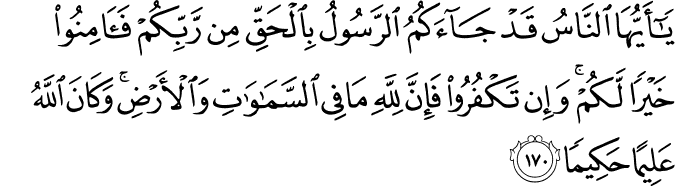 يَـٰٓأَيُّهَا ٱلنَّاسُ قَدْ جَآءَكُمُ ٱلرَّسُولُ بِٱلْحَقِّ مِن رَّبِّكُمْ فَـَٔامِنُوا۟
خَيْرًا لَّكُمْ ۚ وَإِن تَكْفُرُوا۟ فَإِنَّ لِلَّهِ مَا فِى ٱلسَّمَـٰوَٰتِ وَٱلْأَرْضِ ۚ وَكَانَ ٱللَّهُ
عَلِيمًا حَكِيمًا ١٧٠